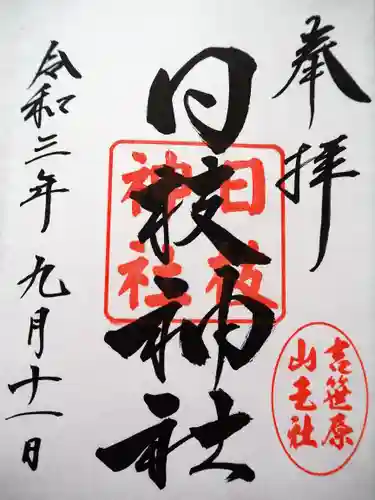 奉拝
日枝神社
日枝
神社
吉笹原
山王社
令和三年 九月十一日